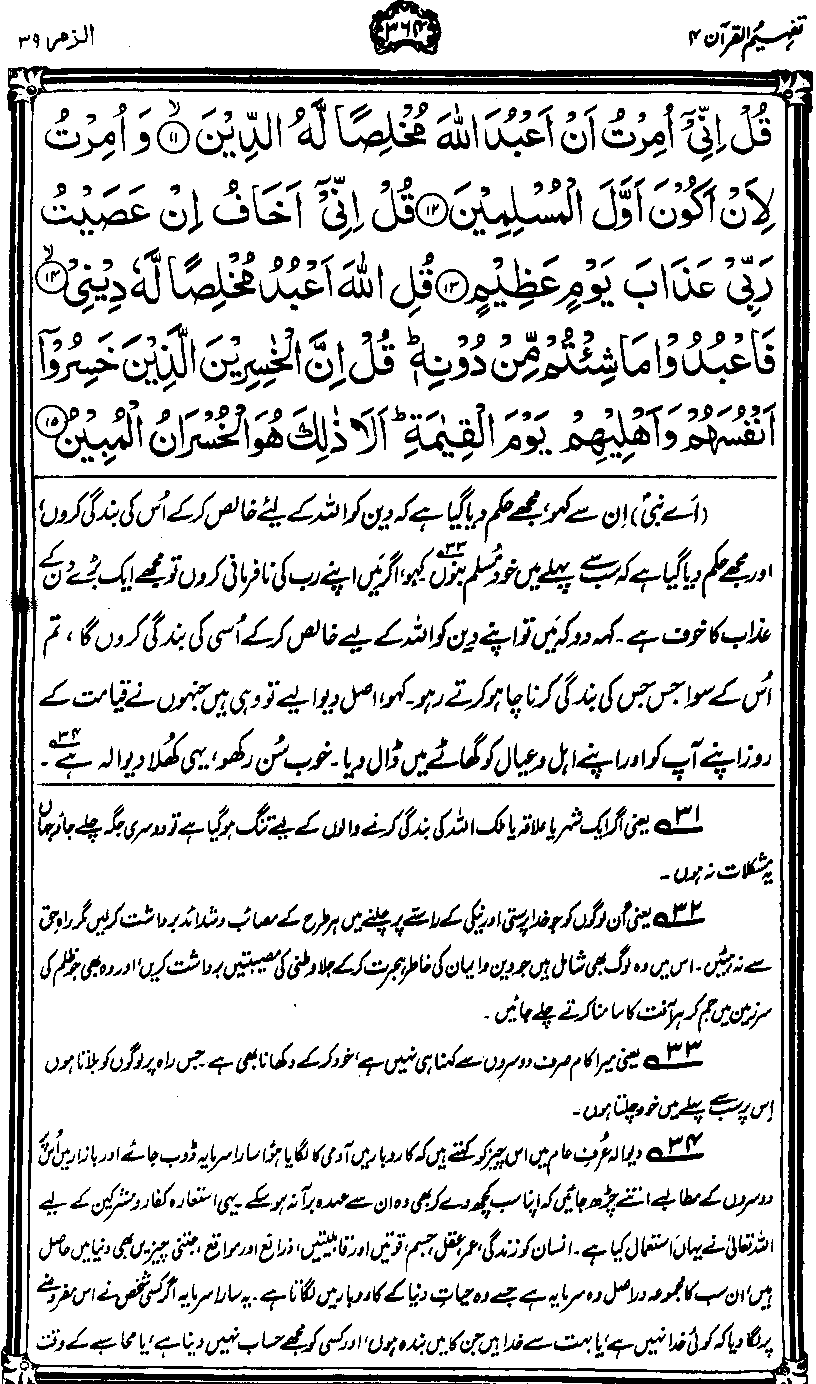 تفہیم القرآن ۴
۳۶۴
الزمر ۳۹
قُلْ اِنِّیْۤ اُمِرْتُ اَنْ اَعْبُدَ اللّٰهَ مُخْلِصًا لَّهُ الدِّیْنَ ۙ﴿۱۱﴾ وَ اُمِرْتُ
لِاَنْ اَكُوْنَ اَوَّلَ الْمُسْلِمِیْنَ ﴿۱۲﴾ قُلْ اِنِّیْۤ اَخَافُ اِنْ عَصَیْتُ
رَبِّیْ عَذَابَ یَوْمٍ عَظِیْمٍ ﴿۱۳﴾ قُلِ اللّٰهَ اَعْبُدُ مُخْلِصًا لَّهٗ دِیْنِیْ ۙ﴿۱۴﴾
فَاعْبُدُوْا مَا شِئْتُمْ مِّنْ دُوْنِهٖ ؕ قُلْ اِنَّ الْخٰسِرِیْنَ الَّذِیْنَ خَسِرُوْۤا
اَنْفُسَهُمْ وَ اَهْلِیْهِمْ یَوْمَ الْقِیٰمَةِ ؕ اَلَا ذٰلِكَ هُوَ الْخُسْرَانُ الْمُبِیْنُ ﴿۱۵﴾
(اَے نبیؐ) اِن سے کہو، مجھے حکم دیا گیا ہے کہ دین کو اللہ کے لیٔے خالص کر کے اُس کی بندگی کروں،
اور مجھے حکم دیا گیا ہے کہ سب سے پہلے میں خود مُسلم بنوں۳۳۔ کہو، اگر مَیں اپنے رب کی نافرمانی کروں تو مجھے ایک بڑے دن کے
عذاب کا خوف ہے۔ کہہ دو کہ مَیں تو اپنے دین کو اللہ کے لیے خالص کر کے اُسی کی بندگی کروں گا، تم
اُس کے سوا جس جس کی بندگی کرنا چاہو کرتے رہو۔ کہو، اصل دیوالیے تو وہی ہیں جنہوں نے قیامت کے
روز اپنے آپ کو اور اپنے اہل و عیال کو گھاٹے میں ڈال دیا۔ خوب سُن رکھو، یہی کھُلا دیوالہ ہے۳۴۔
۳۱ یعنی اگر ایک شہر یا علاقہ یا ملک اللہ کی بندگی کرنے والوں کے لیے تنگ ہو گیا ہے تو دوسری جگہ چلے جاؤ جہاں
یہ مشکلات نہ ہوں۔
۳۲ یعنی اُن لوگوں کو جو خدا پرستی اور نیکی کے راستے پر چلنے میں ہر طرح کے مصائب و شدائد برداشت کر لیں مگر راہِ حق
سے نہ ہٹیں۔ اس میں وہ لوگ بھی شامل ہیں جو دین و ایمان کی خاطر ہجرت کر کے جلاوطنی کی مصیبتیں برداشت کریں، اور وہ بھی جو ظلم کی
سرزمین میں جم کر ہر آفت کا سامنا کرتے چلے جائیں۔
۳۳ یعنی میرا کام صرف دوسروں سے کہنا ہی نہیں ہے، خود کر کے دکھانا بھی ہے۔ جس راہ پر لوگوں کو بلاتا ہوں
اِس پر سب سے پہلے میں خود چلتا ہوں۔
۳۴ دیوالہ عُرفِ عام میں اس چیز کو کہتے ہیں کہ کاروبار میں آدمی کا لگایا ہوُا سارا سرمایہ ڈوب جائے اور بازار میں اُس پر
دوسروں کے مطالبے اتنے چڑھ جائیں کہ اپنا سب کچھ دے کر بھی وہ ان سے عہدہ برآ نہ ہو سکے۔ یہی استعارہ کفار و مشرکین کے لیے
اللہ تعالیٰ نے یہاں استعمال کیا ہے۔ انسان کو زندگی، عمر، عقل، جسم، قوتیں اور قابلیتیں، ذرائع اور مواقع، جتنی چیزیں بھی دنیا میں حاصل
ہیں، ان سب کا مجموعہ دراصل وہ سرمایہ ہے جسے وہ حیاتِ دنیا کے کاروبار میں لگاتا ہے۔ یہ سارا سرمایہ اگر کسی شخص نے اس مفروضے
پر لگا دیا کہ کوئی خدا نہیں ہے، یا بہت سے خدا ہیں جن کا میں بندہ ہوں، اور کسی کو مجھے حساب نہیں دینا ہے، یا محاسبے کے وقت